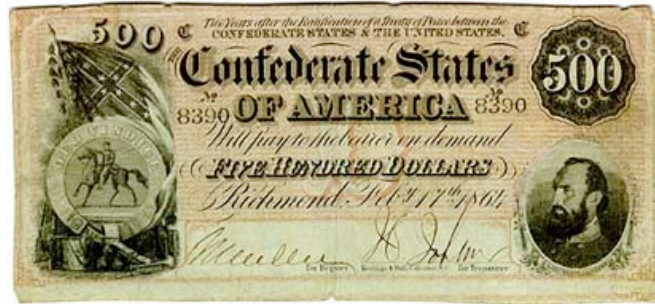 500
Two Years after the Ratification of a Treaty of Peace between the
CONFEDERATE STATES & THE UNITED STATES.
C
C
THE
Confederate States
500
No
8390
OF AMERICA
No
8390
Will pay to the bearer on demand
FIVE HUNDRED DOLLARS
Richmond, Feby. 17th, 1864
DEO VINDICE
for Register
for Treasurer